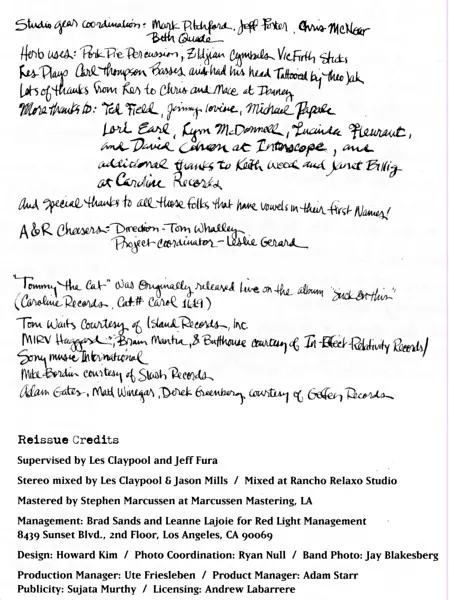 Studio gear coordination: Mark Pitchford, Jeff Porter, Chris McNeer
Beth Quade
Herb uses: Pork Pie Percussion, Zildjian Cymbals Vic Firth Sticks
Les Plays Carl Thompson Basses and had his head Tattooed by theo Jak
Lots of thanks from Les to Chris and Mace at Dunney
More thanks to: Ted Field, Jimmy Iovine, Michael Papale
Lori Earl, Kym McDonnell, Lucinda Fleurant,
and David Cohen at Interscope, and
additional thanks to Keith Wood and Janet Billig
at Caroline Records
And special thanks to all those folks that have vowels in their first Names!
A&R Chasers: Direction - Tom Whalley
Project coordinator - Leslie Gerard
"Tommy the Cat" was originally released live on the album "Suck On This"
(Caroline Records, Cat# Carol 1619)
Tom Waits Courtesy of Island Records, Inc.
MIRV Haggard, Brain Mantia, & Buffhouse courtesy of In-Effect-Relativity Records/
Sony music International
Mike Bordin courtesy of Slash Records
Adam Gates, Matt Winegar, Derek Greenberg courtesy of Geffen Records
Reissue Credits
Supervised by Les Claypool and Jeff Fura
Stereo mixed by Les Claypool & Jason Mills / Mixed at Rancho Relaxo Studio
Mastered by Stephen Marcussen at Marcussen Mastering, LA
Management: Brad Sands and Leanne Lajoie for Red Light Management
8439 Sunset Blvd., 2nd Floor, Los Angeles, CA 90069
Design: Howard Kim / Photo Coordination: Ryan Null / Band Photo: Jay Blakesberg
Production Manager: Ute Friesleben / Product Manager: Adam Starr
Publicity: Sujata Murthy / Licensing: Andrew Labarrere